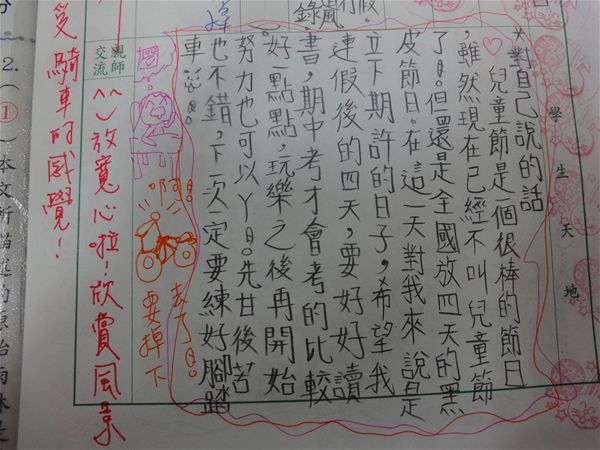 學生天地
*對自己說的話
兒童節是一個很棒的節日
,雖然現在已經不叫兒童節
了!但還是全國放四天的黑
皮節日。在這一天對我來說是
立下期許的日子,希望我
連假後的四天,要好好讀
書,期中考才會考的比較
好一點點,玩樂之後再開始
努力也可以ㄚ!先甘後苦
也不錯,下次一定要練好腳踏
車
啊!
要掉下
去了!
親師
交流
^^放寬心啦!欣賞風景
受騎車的感覺!
2.(1)本文所描述的原始雨林是
錄